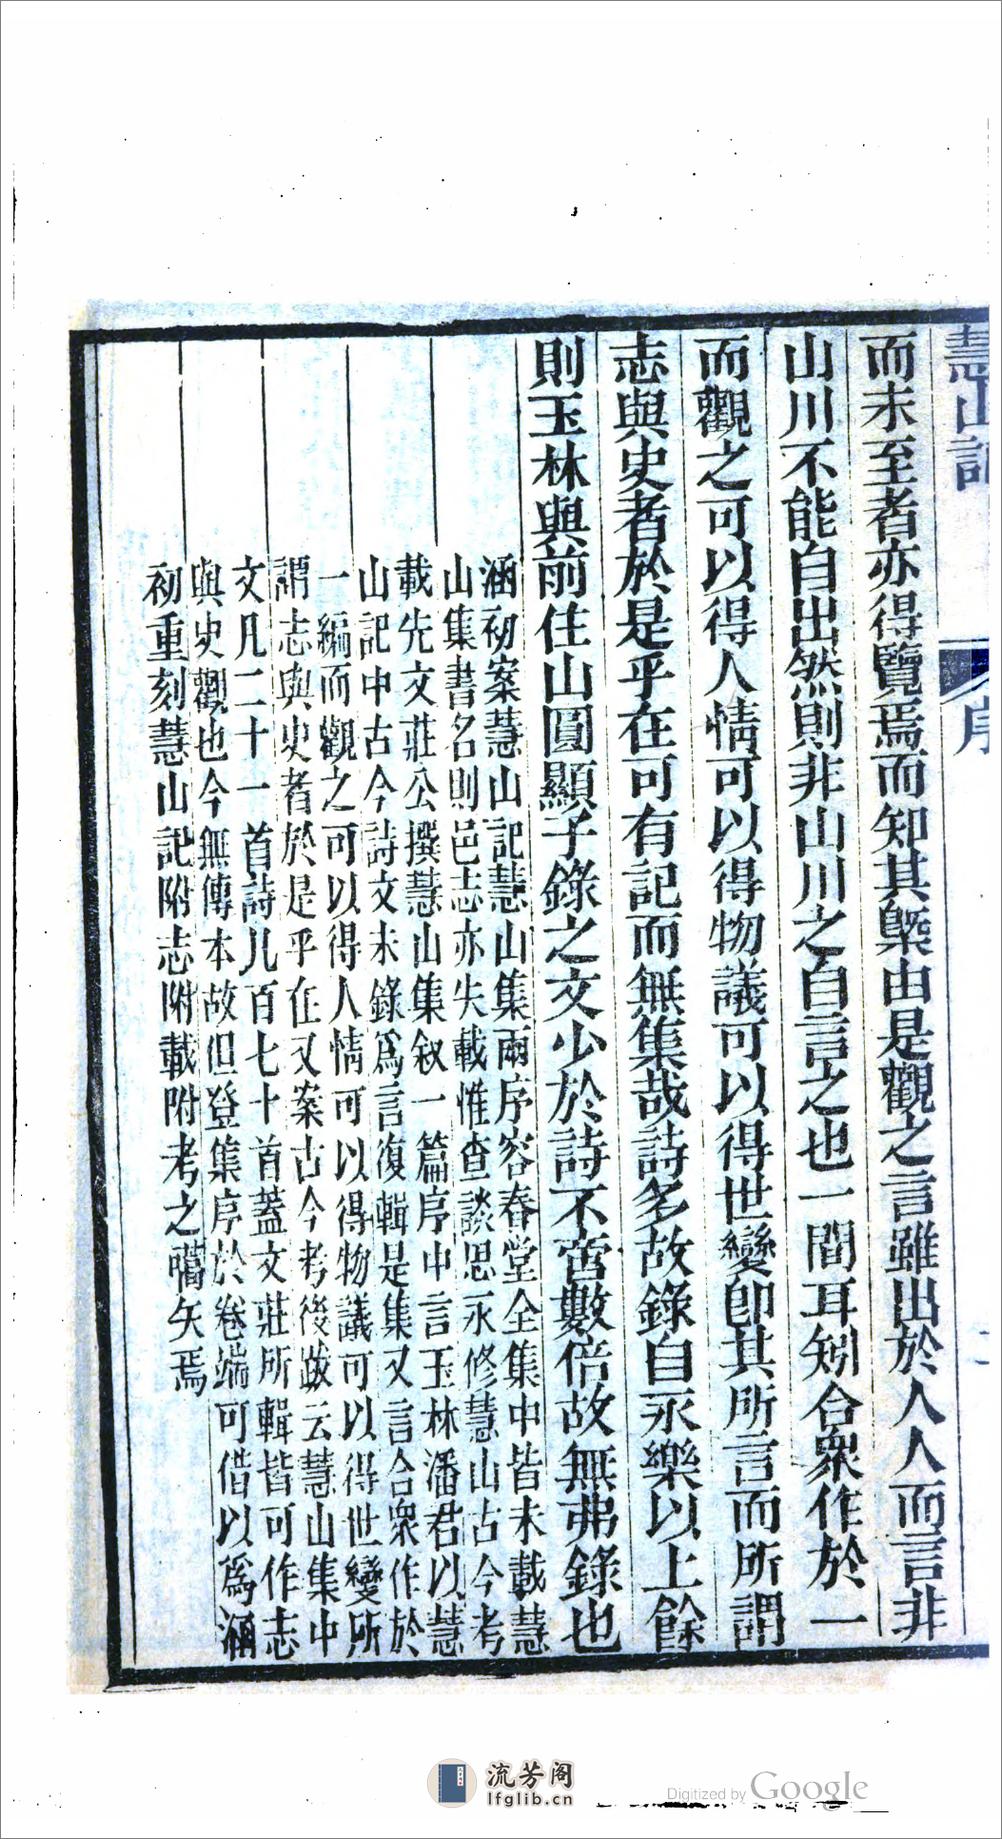 慧山記
序
而未至者亦得覽焉而知其槩由是觀之言雖出於人人而言非
山川不能自出然則非山川之自言之也一間耳矧合衆作於一
而觀之可以得人情可以得物議可以得世變卽其所言而所謂
志與史者於是乎在可有記而無集哉詩多故錄自永樂以上餘
則玉林與前住山圓顯子錄之文少於詩不啻數倍故無弗錄也
涵初案慧山記慧山集兩序容春堂全集中皆未載慧
山集書名則邑志亦失載惟查談思永修慧山古今考
載先文莊公撰慧山集叙一篇序中言玉林潘君以慧
山記中古今詩文未錄爲言復輯是集又言合衆作於
一編而觀之可以得人情可以得物議可以得世變所
謂志與史者於是乎在又案古今考後跋云慧山集中
文凡二十一首詩凡百七十首蓋文莊所輯皆可作志
與史觀也今無傳本故但登集序於卷端可借以爲涵
初重刻慧山記附志附載附考之嚆矢焉
流芳阁
lfglib.cn
Digitized by Google